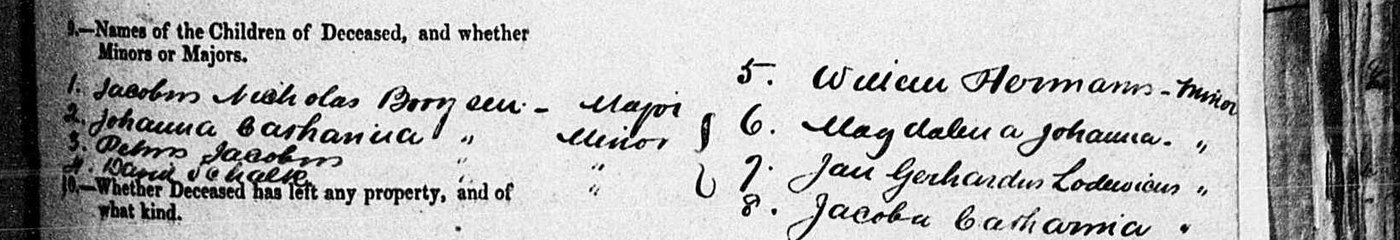 9.—Names of the Children of Deceased, and whether
Minors or Majors.
1. Jacobus Nicholas Booysen - Major
2. Johanna Catharina " Minor
3. Petrus Jacobus " "
4. David Schalk " "
5. Willem Hermanus - Minor
6. Magdalena Johanna. "
7. Jan Gerhardus Lodewicus "
8. Jacoba Catharina "
10.—Whether Deceased has left any property, and of
what kind.